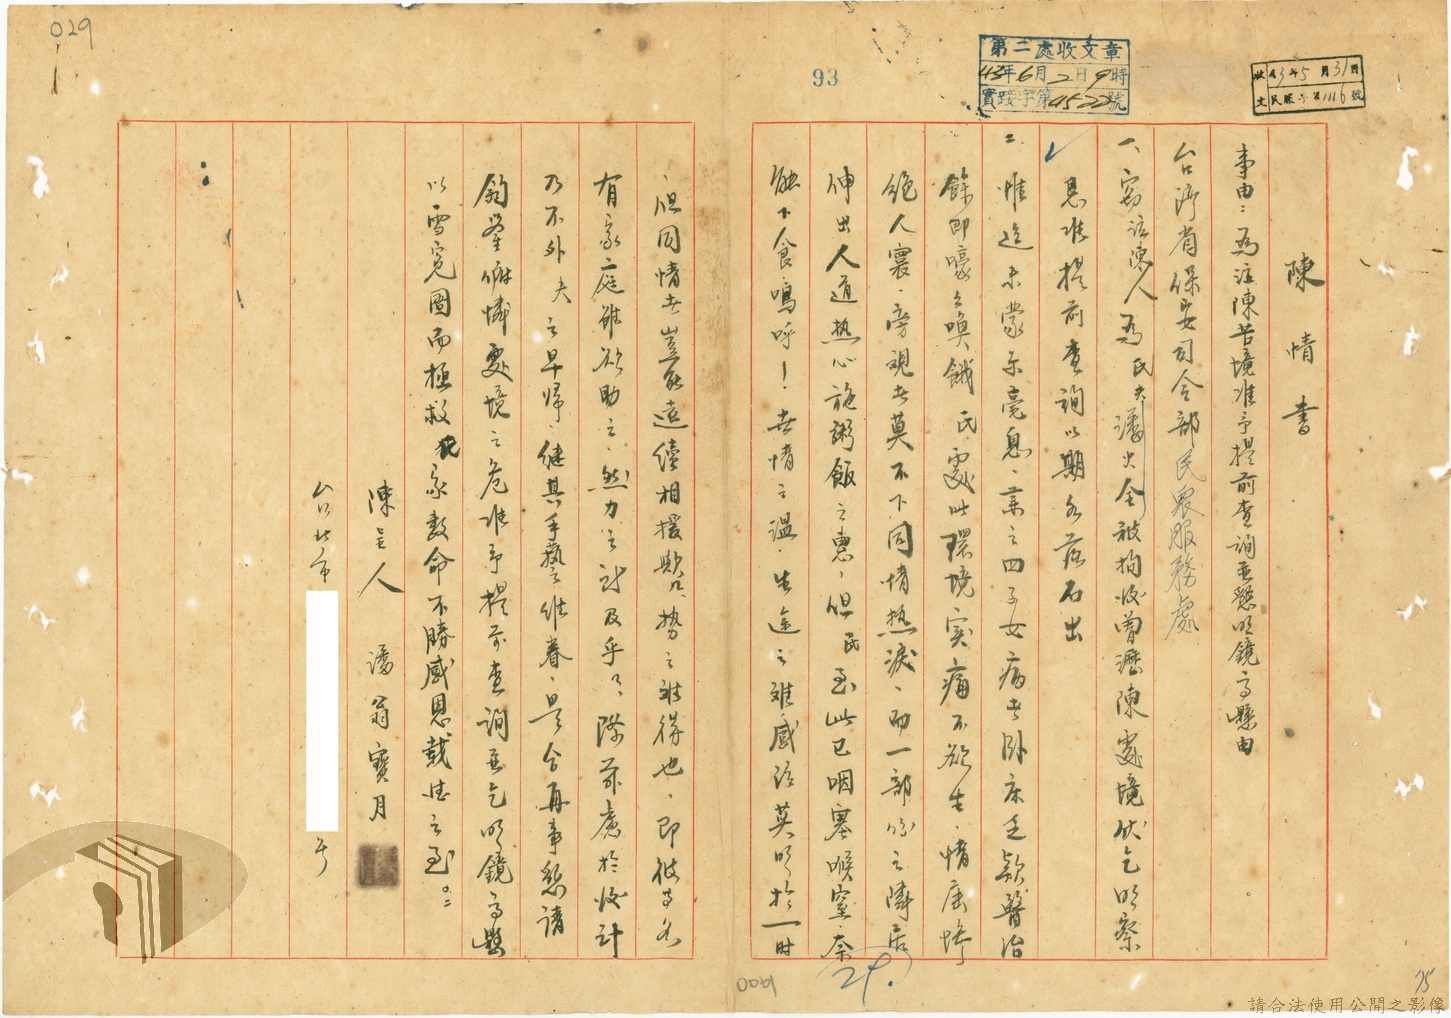 029
93
第二處收文章
43年6月2日9時
實踐字第4522號
收 43年5月31日
文 民服字第1116號
陳情書
事由：為泣陳苦境准予提前查詢並懇明鏡高懸由
台灣省保安司令部民眾服務處
一、竊泣陳人為氏夫潘火全被拘後曾瀝陳處境伏乞明察
恩准提前查詢以期水落石出
二、惟迄未蒙示毫息、棄之四子女病者臥床乏款醫治
餘即嚎々喚餓、氏處此環境實痛不欲生、情屈
絕人寰、旁視者莫不下同情熱淚、而一部份之隣居
伸出人道熱心施粥飯之惠、但氏至此已咽塞喉窒、奈
能下食嗚呼！世情之溫、生途之難感路莫明於一時
但同情者豈能遠續相援歟只、勢之難得也、即彼等各
有家庭雖欲助之、然力之計及乎々、際茲慮於後計
乃不外夫之早歸、繼其手藝之維眷、是合再事懇請
鈞鑒俯憐處境之危准予提前查詢並乞明鏡高懸
以雪冤圖而極救 家數命不勝感恩戴德之至。
陳呈人 潘翁寶月
台北市 号
29.
0001
75
請合法使用公開之影像